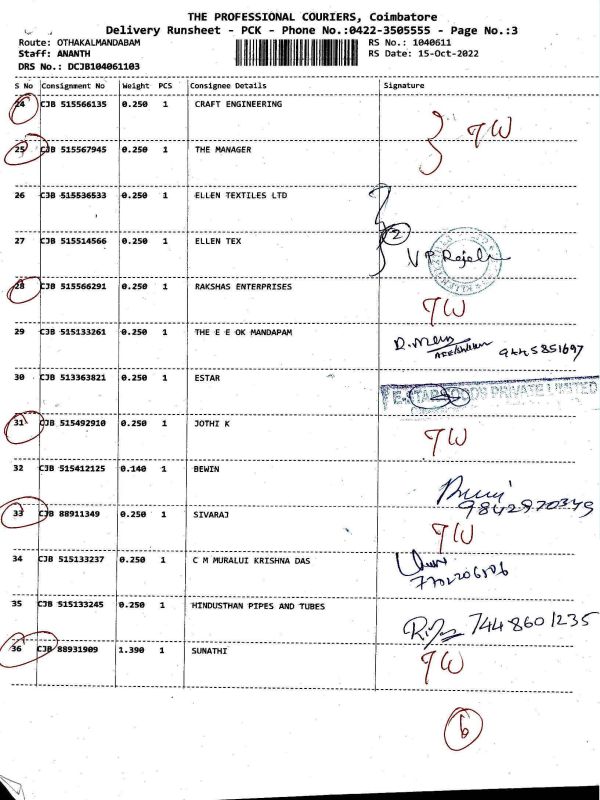 THE PROFESSIONAL COURIERS, Coimbatore
Delivery Runsheet - PCK - Phone No.:0422-3505555 - Page No.:3
Route: OTHAKALMANDABAM RS No.: 1040611
Staff: ANANTH RS Date: 15-Oct-2022
DRS No.: DCJB104061103
S No Consignment No Weight PCS Consignee Details Signature
24 CJB 515566135 0.250 1 CRAFT ENGINEERING
TW
25 CJB 515567945 0.250 1 THE MANAGER
26 CJB 515536533 0.250 1 ELLEN TEXTILES LTD
2
27 CJB 515514566 0.250 1 ELLEN TEX
V P Rajah
28 CJB 515566291 0.250 1 RAKSHAS ENTERPRISES
TW
29 CJB 515133261 0.250 1 THE E E OK MANDAPAM
9445851697
30 CJB 513363821 0.250 1 ESTAR
PRIVATE LIMITED
31 CJB 515492910 0.250 1 JOTHI K
TW
32 CJB 515412125 0.140 1 BEWIN
9842970349
33 CJB 88911349 0.250 1 SIVARAJ
TW
34 CJB 515133237 0.250 1 C M MURALUI KRISHNA DAS
35 CJB 515133245 0.250 1 HINDUSTHAN PIPES AND TUBES
7448601235
36 CJB 88931909 1.390 1 SUNATHI
TW
6